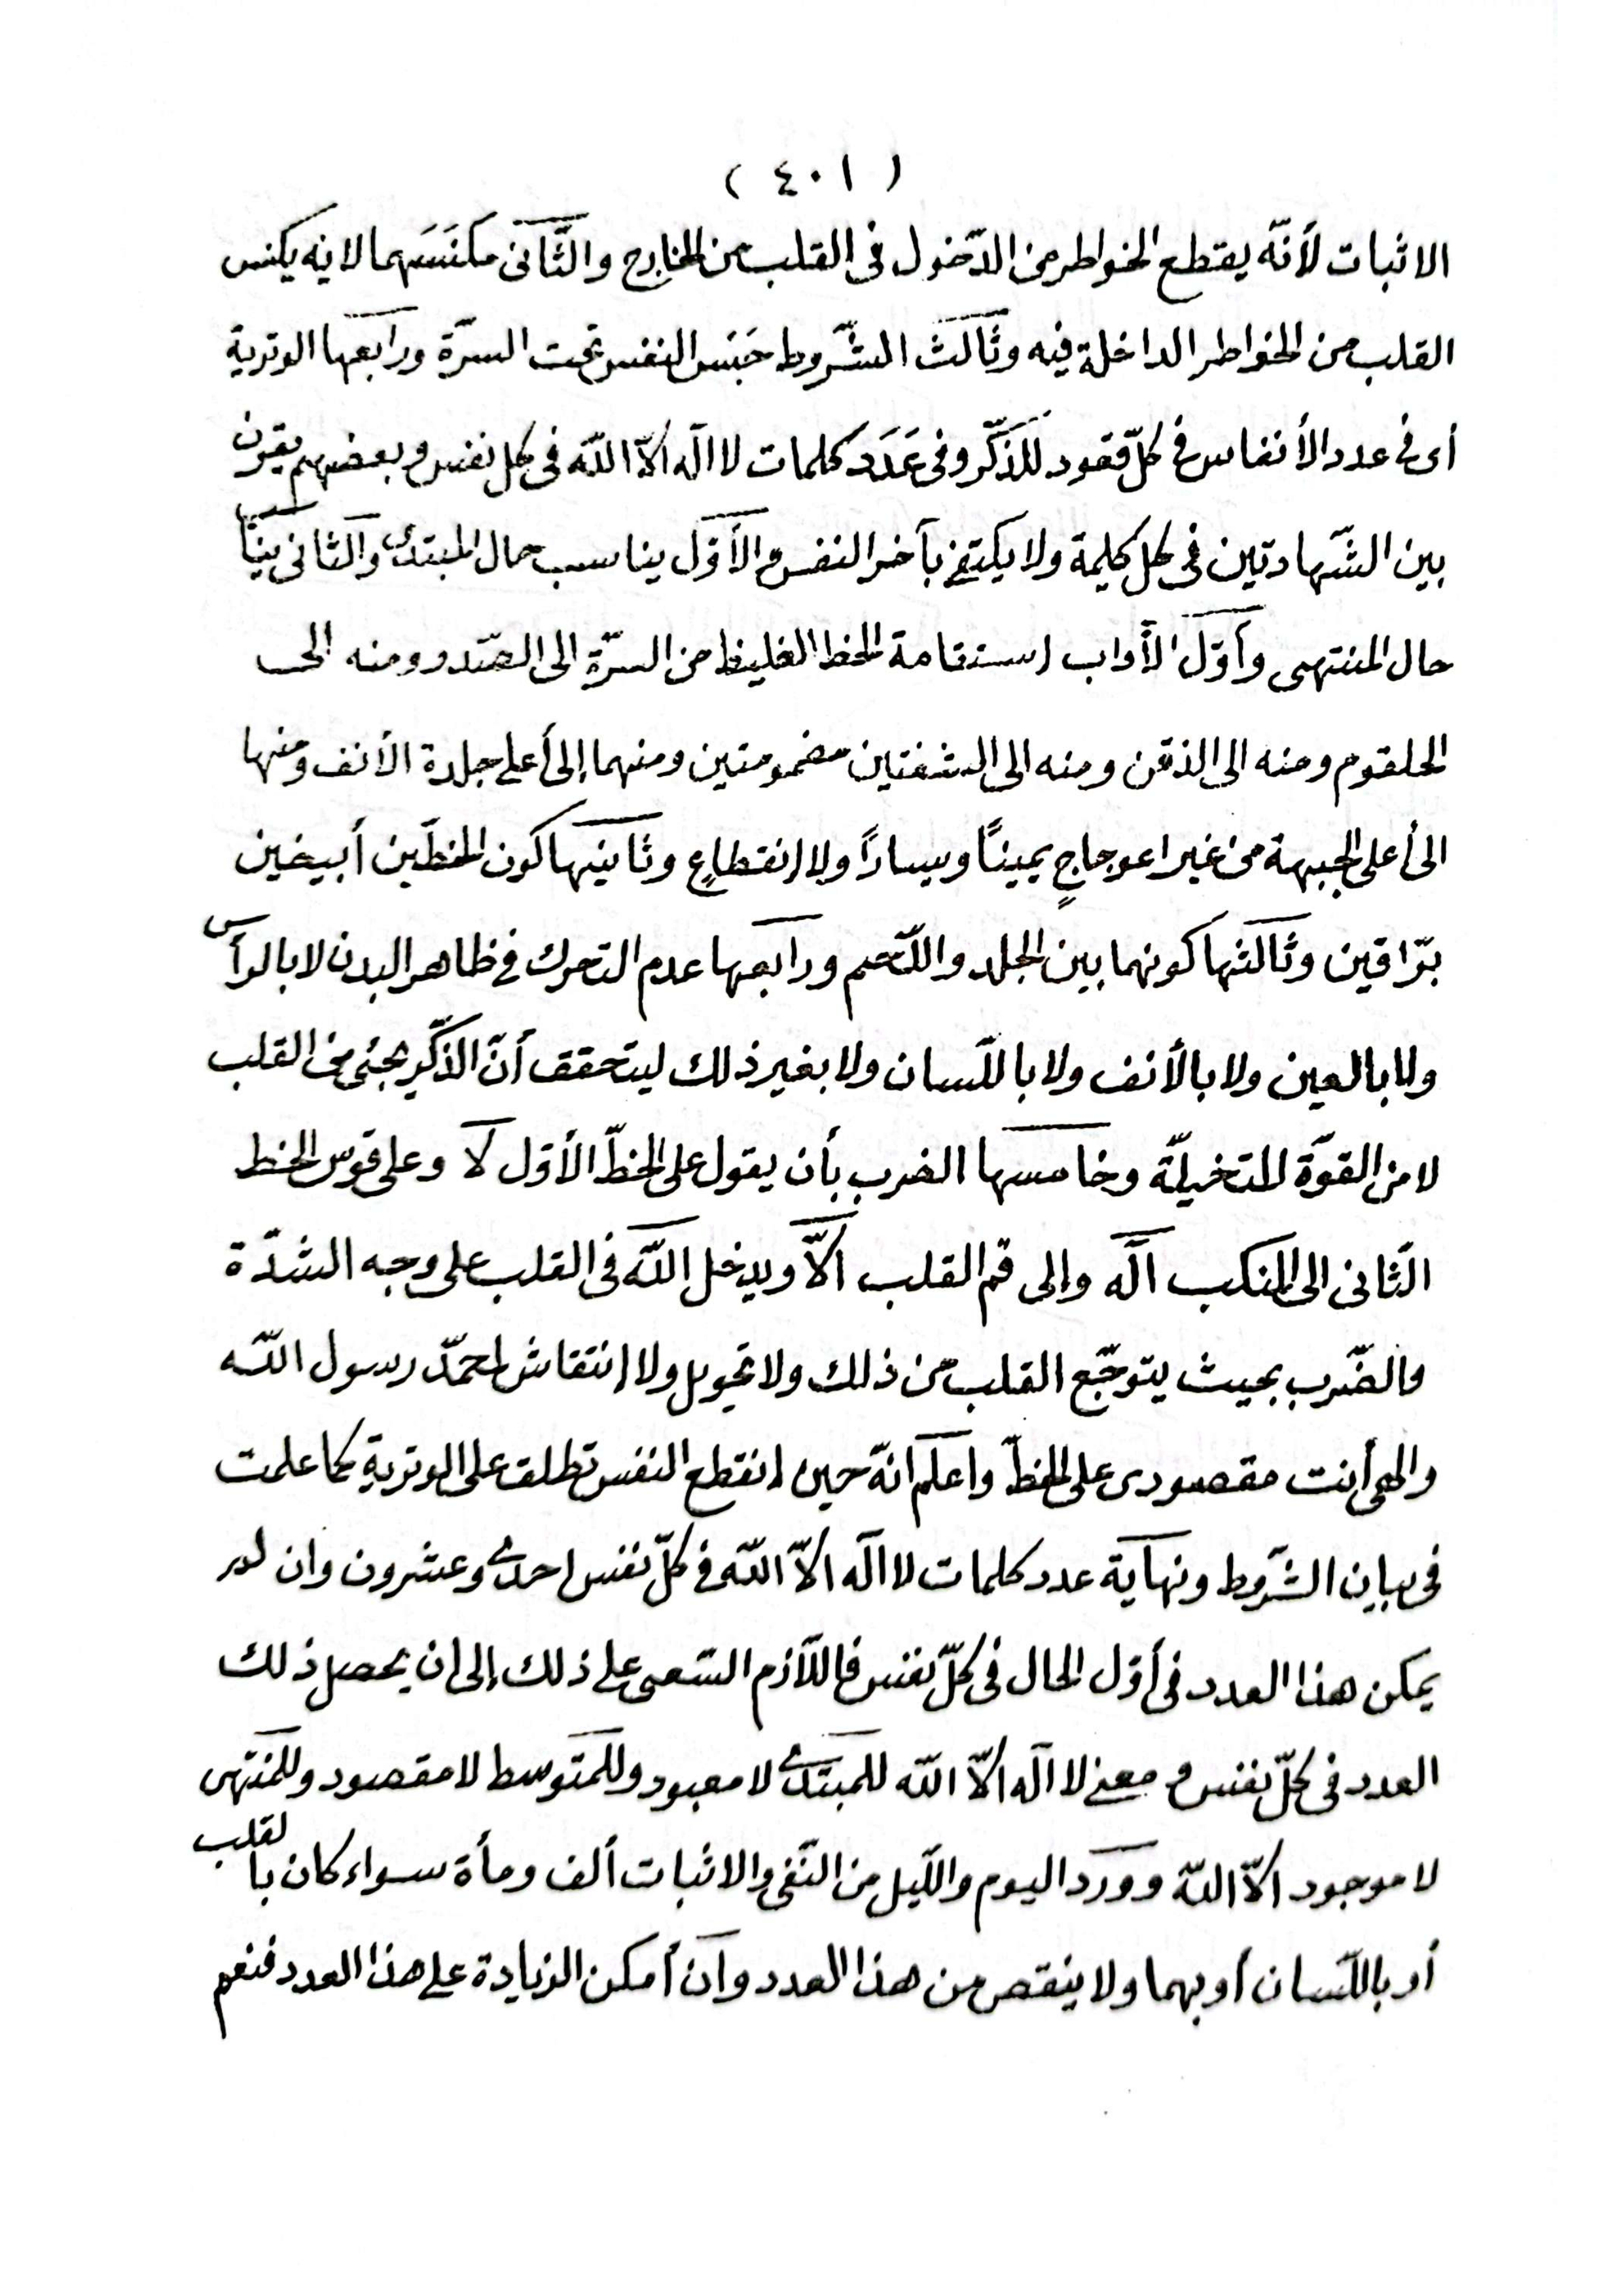 ( ٤٠١ )
الاثبات لأنّه يقتطع الخواطر من الدّخول فى القلب من الخارج والثّانى مكنَسَهما لانه يكنس
القلب من الخواطر الداخلة فيه وثالث الشّروط حَبَس النفس تحت السرّة ورابعها الوترية
أى فى عدد الأنفاس فى كلّ قعود للذّكر وفى عَدَد كلمات لا اله الاّ الله فى كل نفس وبعضهم يقرن
بين الشّهادتين فى كل كلمة ولا يكتفى بآخر النفس والأوّل يناسب حال المبتدئ والثانى يناسب
حال المنتهى وأوّل الأداب استقامة الخط الغليظ من السرّة الى الصّدر ومنه الى
الحلقوم ومنه الى الذقن ومنه الى الشفتين مضمومتين ومنهما إلى أعلى جلدة الأنف ومنها
الى أعلى الجبهة من غير اعوجاجٍ يمينًا ويسارًا ولا انقطاعٍ وثانيها كون الخطّين أبيضين
برّاقين وثالثها كونهما بين الجلد واللّحم ورابعها عدم التحرك فى ظاهر البدن لا بالرأس
ولا بالعين ولا بالأنف ولا باللّسان ولا بغير ذلك ليتحقق أنّ الذّكر يجئ من القلب
لا من القوّة المتخيلّة وخامسها الضرب بأن يقول على الخطّ الأوّل لا وعلى قوس الخط
الثّانى الى المنكب اله وإلى فم القلب الاّ ويدخل الله فى القلب على وجه الشدّة
والضّرب بحيث يتوجّع القلب من ذلك ولا تحويل ولا إنتقاش لمحمّد رسول الله
والهى أنت مقصودى على الخطّ واعلم انّه حين انقطع النفس تطلق على الوترية كما علمت
فى بيان الشّروط ونهاية عدد كلمات لا اله الاّ الله فى كلّ نفس احدى وعشرون وان لم
يمكن هذا العدد فى أوّل الحال فى كلّ نفس فاللاّزم السّعى على ذلك إلى ان يحصل ذلك
العدد فى كلّ نفس ومعنى لا اله الاّ الله للمبتدئ لا معبود وللمتوسط لا مقصود وللمنتهى
لا موجود الاّ الله وورد اليوم واللّيل من النّفى والاثبات ألف ومأة سواء كان بالقلب
أو باللّسان أو بهما ولا ينقص من هذا العدد وان أمكن الزيادة على هذا العدد فنعم